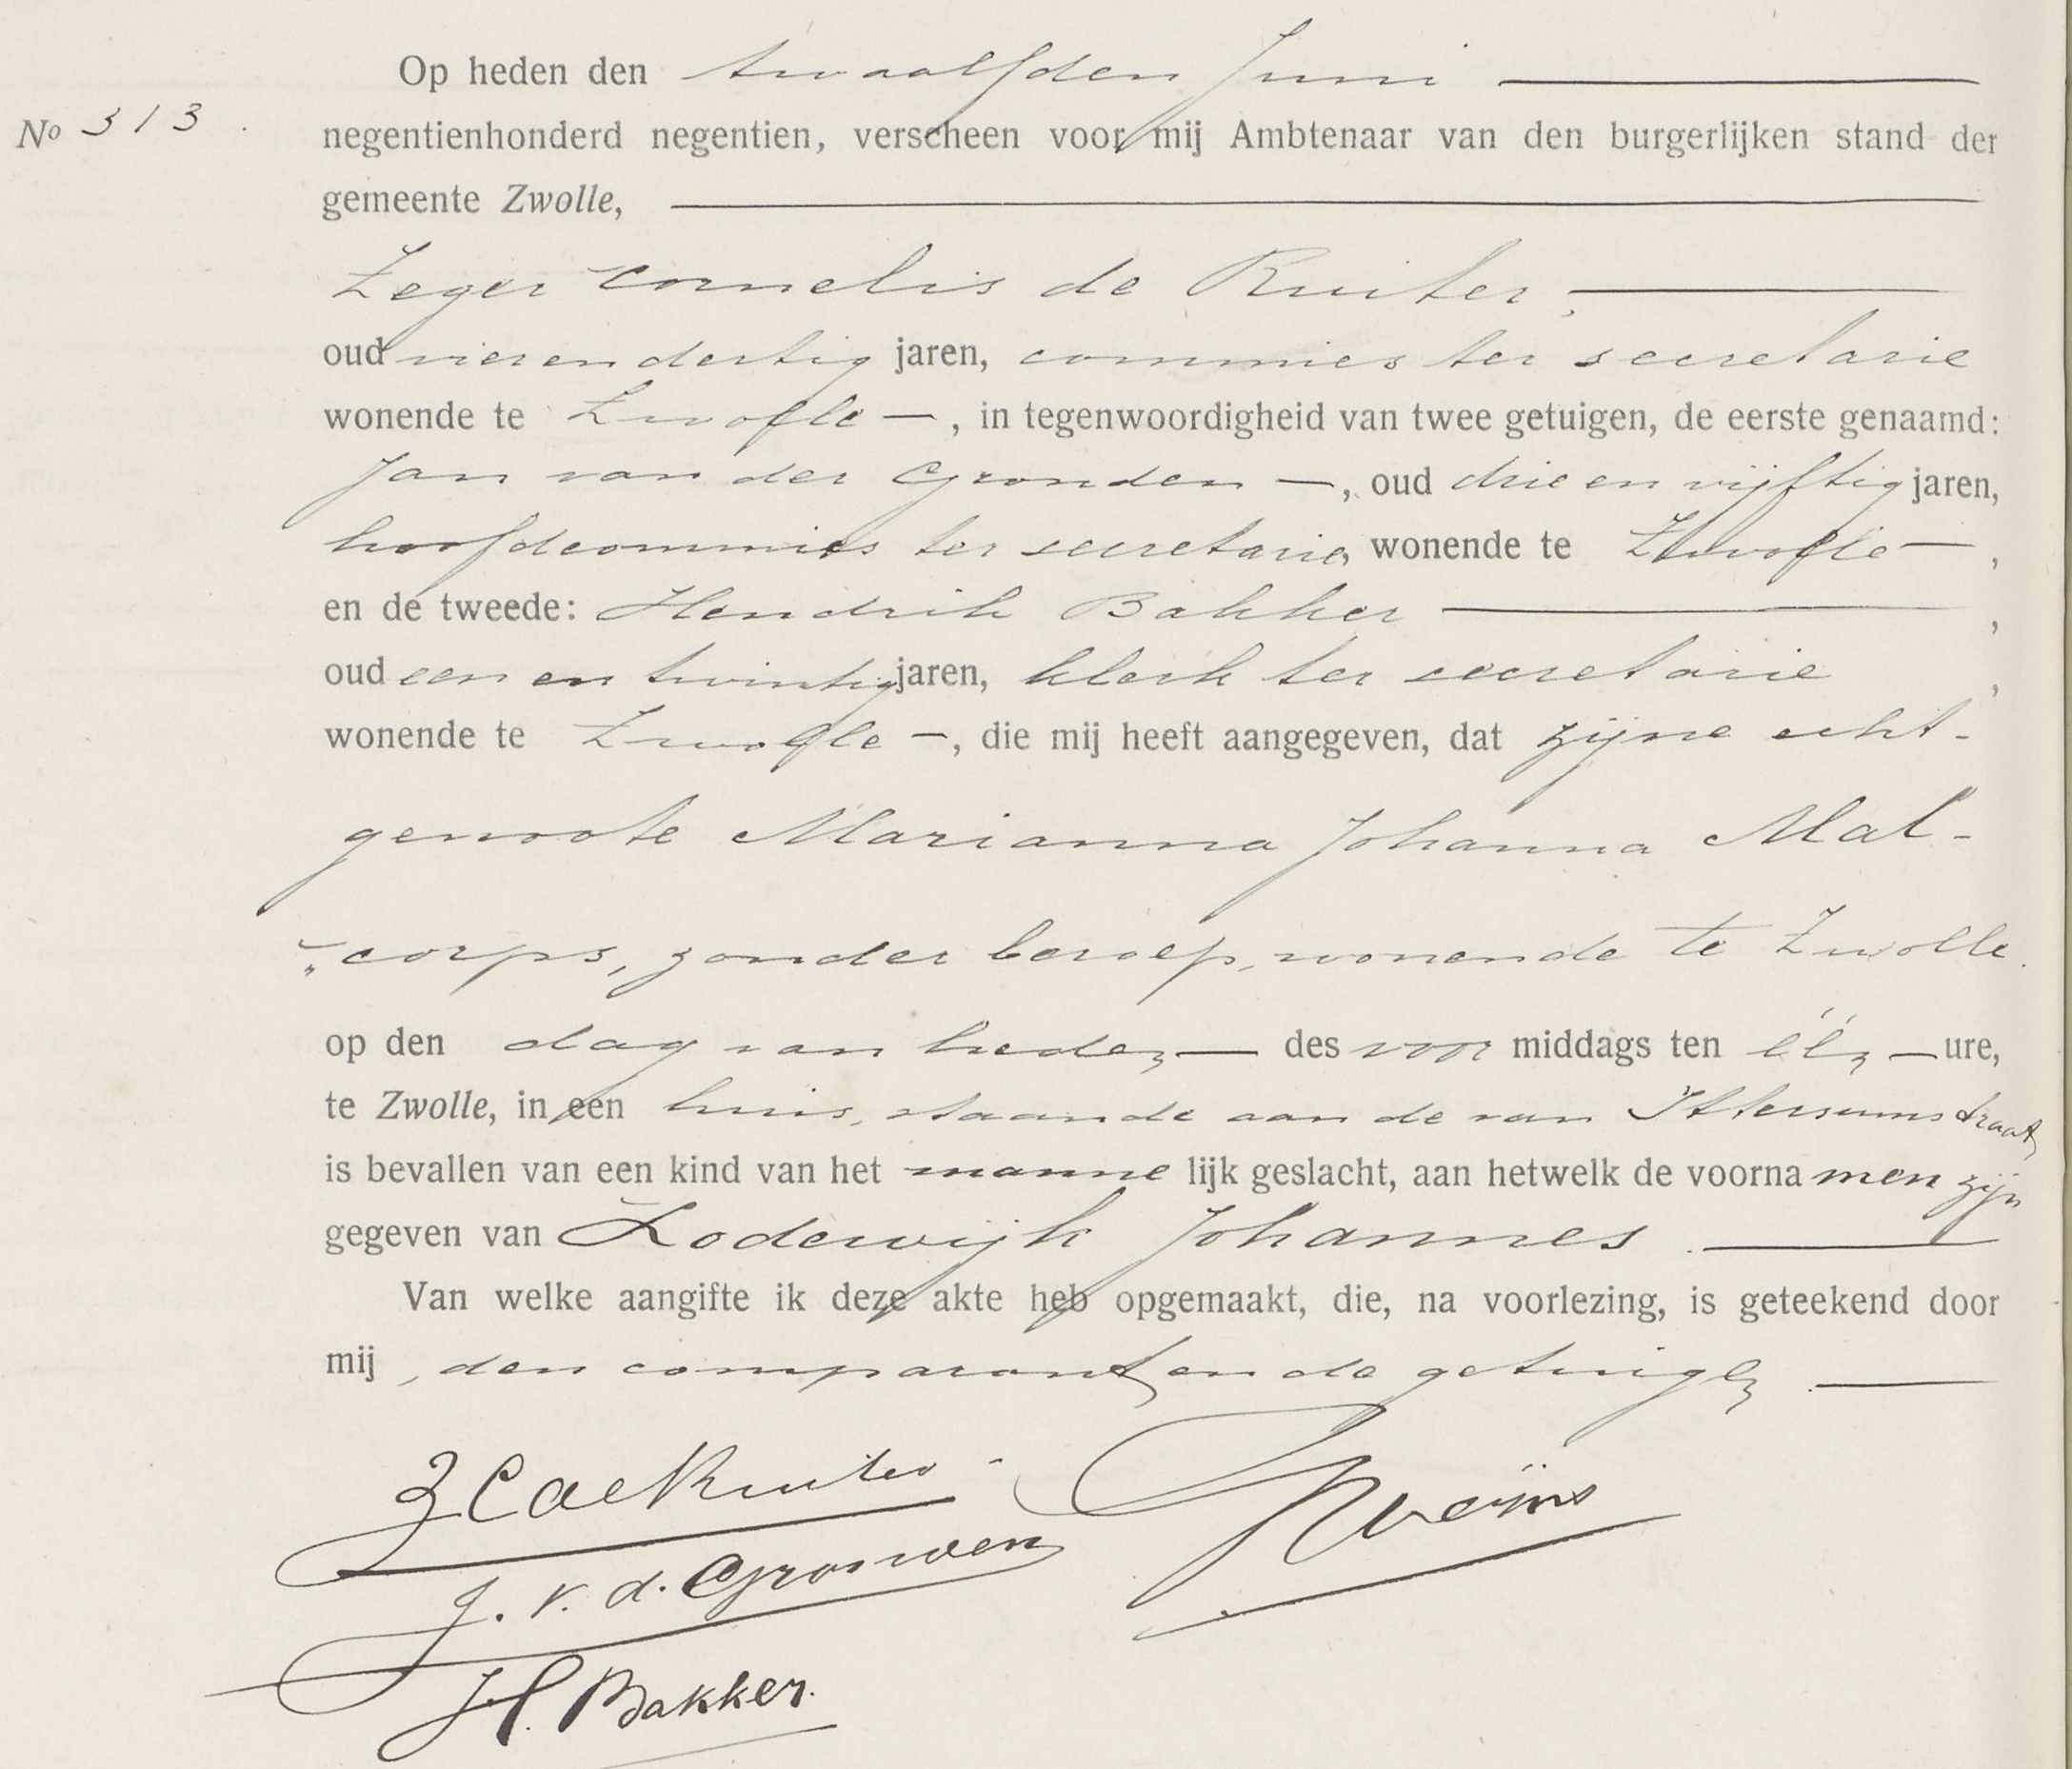 Op heden den twaalfden Juni
No 313.
negentienhonderd negentien, verscheen voor mij Ambtenaar van den burgerlijken stand der
gemeente Zwolle,
Zeger Cornelis de Ruiter,
oud vier en dertig jaren, commies ter secretarie
wonende te Zwolle —, in tegenwoordigheid van twee getuigen, de eerste genaamd:
Jan van der Gronden —, oud drie en vijftig jaren,
hoofdcommies ter secretarie, wonende te Zwolle —,
en de tweede: Hendrik Bakker,
oud een en twintig jaren, klerk ter secretarie,
wonende te Zwolle —, die mij heeft aangegeven, dat zijne echt-
genoote Marianna Johanna Mal-
„corps, zonder beroep, wonende te Zwolle.
op den dag van heden — des voor middags ten één — ure,
te Zwolle, in een huis, staande aan de van Ittersumstraat,
is bevallen van een kind van het manne lijk geslacht, aan hetwelk de voorna men zijn
gegeven van Lodewijk Johannes.
Van welke aangifte ik deze akte heb opgemaakt, die, na voorlezing, is geteekend door
mij, den comparant en de getuigen.
Z C de Ruiter
J. v. d. Gronden
H. Bakker.